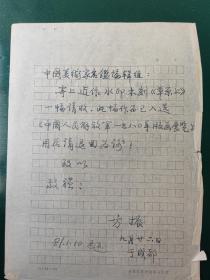 中国美术家名鉴编辑组:
寄上近作水印木刻《草原上》
一幅请收。此幅作品已入选
《中国人民解放军一九八〇年版画展览》
用后请退回为谢!
致以
敬礼!
方振
九月廿六日
于成都